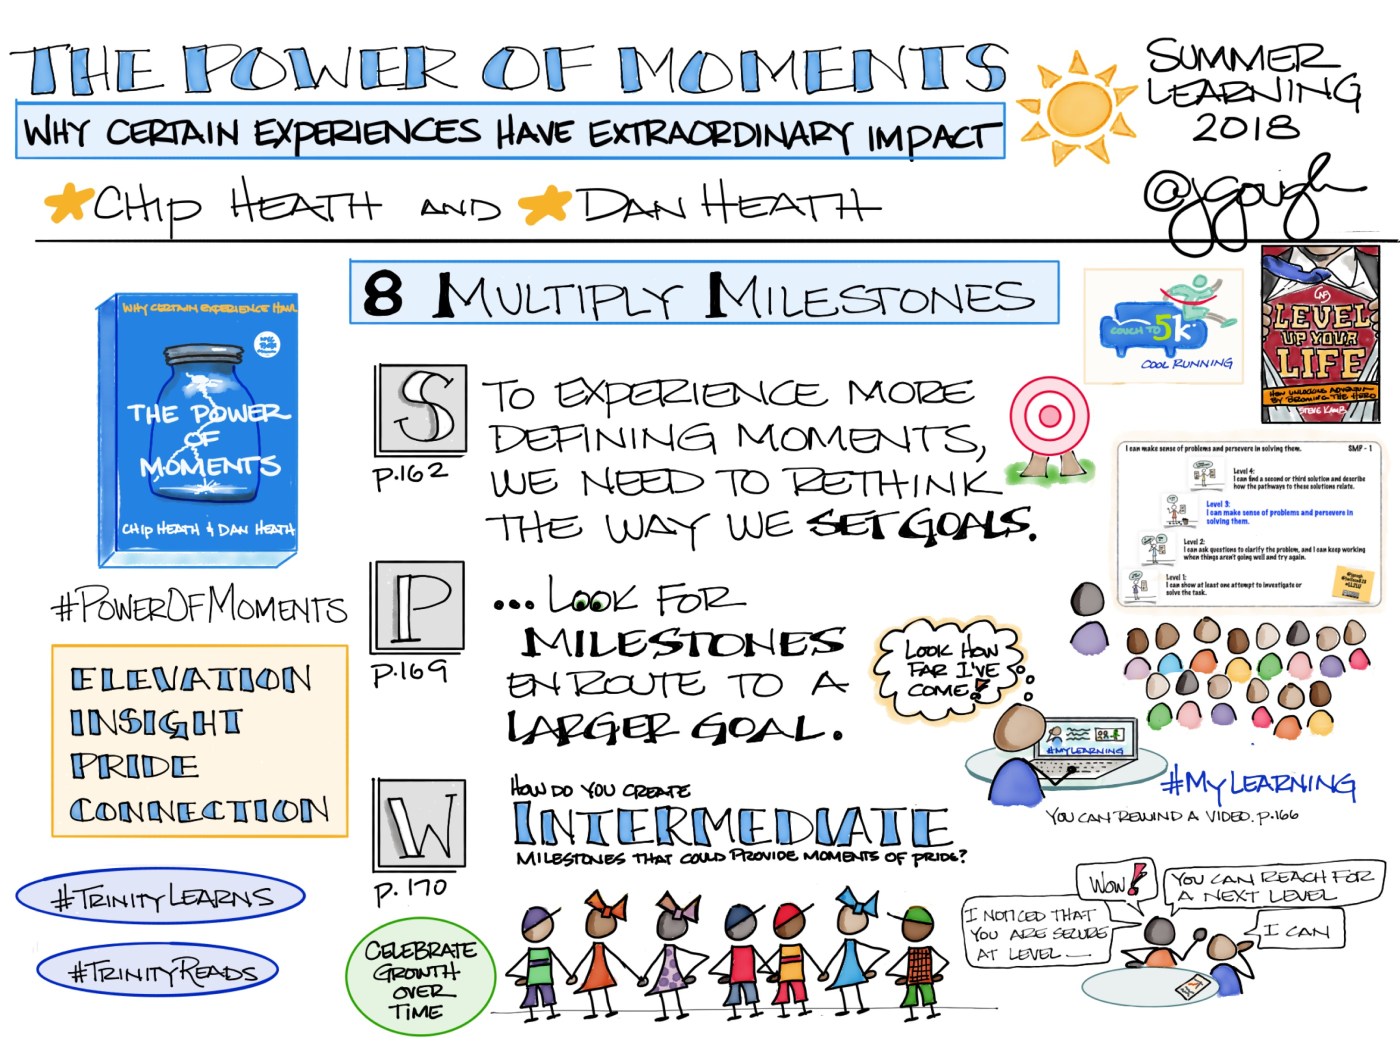 THE POWER OF MOMENTS
WHY CERTAIN EXPERIENCES HAVE EXTRAORDINARY IMPACT
CHIP HEATH AND DAN HEATH
SUMMER
LEARNING
2018
@jgough
WHY CERTAIN EXPERIENCE HAVE
THE POWER
OF
MOMENTS
CHIP HEATH & DAN HEATH
#POWEROFMOMENTS
ELEVATION
INSIGHT
PRIDE
CONNECTION
#TRINITYLEARNS
#TRINITYREADS
8 MULTIPLY MILESTONES
S
P.162
TO EXPERIENCE MORE
DEFINING MOMENTS,
WE NEED TO RETHINK
THE WAY WE SET GOALS.
P
P.169
... LOOK FOR
MILESTONES
EN ROUTE TO A
LARGER GOAL.
W
P. 170
HOW DO YOU CREATE
INTERMEDIATE
MILESTONES THAT COULD PROVIDE MOMENTS OF PRIDE?
CELEBRATE
GROWTH
OVER
TIME
COUCH TO 5K
COOL RUNNING
LEVEL
UP YOUR
LIFE
HOW UNLOCKING ADVENTURE
BY BECOMING THE HERO
STEVE KAMB
I can make sense of problems and persevere in solving them. SMP - 1
Level 4:
I can find a second or third solution and describe
how the pathways to these solutions relate.
Level 3:
I can make sense of problems and persevere in
solving them.
Level 2:
I can ask questions to clarify the problem, and I can keep working
when things aren't going well and try again.
Level 1:
I can show at least one attempt to investigate or
solve the task.
LOOK HOW
FAR I'VE
COME!
#MYLEARNING
#MYLEARNING
YOU CAN REWIND A VIDEO. P.166
WOW!
YOU CAN REACH FOR
A NEXT LEVEL
I NOTICED THAT
YOU ARE SECURE
AT LEVEL __
I CAN